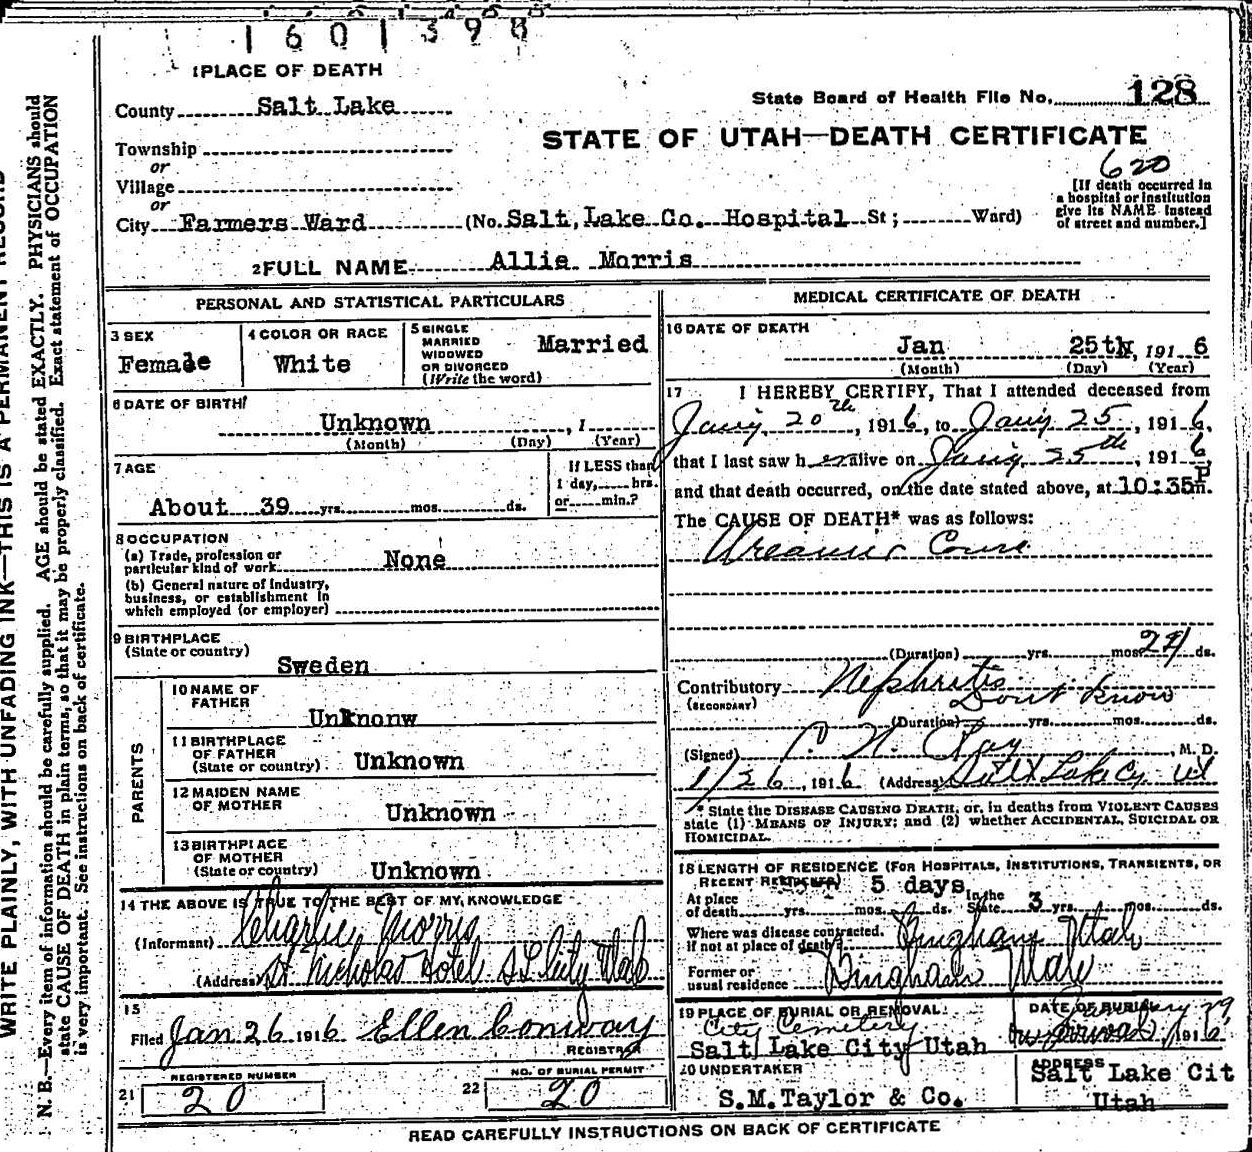 1601398
1 PLACE OF DEATH
County Salt Lake
State Board of Health File No. 128
STATE OF UTAH—DEATH CERTIFICATE
Township
or
Village
or
620
[If death occurred in a hospital or institution give its NAME instead of street and number.]
City Farmers Ward (No. Salt Lake Co. Hospital St; Ward)
2 FULL NAME Allie Morris
PERSONAL AND STATISTICAL PARTICULARS
3 SEX Female
4 COLOR OR RACE White
5 SINGLE MARRIED WIDOWED OR DIVORCED (Write the word) Married
6 DATE OF BIRTH
Unknown , 1
(Month) (Day) (Year)
7 AGE
About 39 yrs. mos. ds.
If LESS than 1 day, hrs. or min.?
8 OCCUPATION
(a) Trade, profession or particular kind of work None
(b) General nature of industry, business, or establishment in which employed (or employer)
9 BIRTHPLACE
(State or country)
Sweden
PARENTS
10 NAME OF FATHER
Unknonw
11 BIRTHPLACE OF FATHER (State or country) Unknown
12 MAIDEN NAME OF MOTHER Unknown
13 BIRTHPLACE OF MOTHER (State or country) Unknown
14 THE ABOVE IS TRUE TO THE BEST OF MY KNOWLEDGE
(Informant) Charlie Morris
(Address) St Nicholas Hotel S L City Utah
15
Filed Jan 26 1916 Ellen Conway
REGISTRAR
REGISTERED NUMBER
21 20
NO. OF BURIAL PERMIT
22 20
MEDICAL CERTIFICATE OF DEATH
16 DATE OF DEATH
Jan 25th, 1916
(Month) (Day) (Year)
17 I HEREBY CERTIFY, That I attended deceased from
20th, 1916, to 25, 1916,
that I last saw her alive on 25th, 1916,
and that death occurred, on the date stated above, at 10:35 P m.
The CAUSE OF DEATH* was as follows:
Uraemic Coma
(Duration) yrs. mos. ds.
Contributory Nephritis
(SECONDARY) Dont Know
(Duration) yrs. mos. ds.
(Signed) C. N. Ray, M. D.
1/26, 1916 (Address) Salt Lake Cy Ut
* State the DISEASE CAUSING DEATH, or, in deaths from VIOLENT CAUSES
state (1) MEANS OF INJURY; and (2) whether ACCIDENTAL, SUICIDAL OR
HOMICIDAL.
18 LENGTH OF RESIDENCE (FOR HOSPITALS, INSTITUTIONS, TRANSIENTS, OR
RECENT RESIDENTS)
At place of death yrs. mos. 5 days ds. In the State 3 yrs. mos. ds.
Where was disease contracted, if not at place of death? Bingham Utah
Former or usual residence Bingham Utah
19 PLACE OF BURIAL OR REMOVAL
City Cemetery
Salt Lake City Utah
DATE OF BURIAL
29, 1916
20 UNDERTAKER
S.M.Taylor & Co.
ADDRESS
Salt Lake Cit
Utah
READ CAREFULLY INSTRUCTIONS ON BACK OF CERTIFICATE
WRITE PLAINLY, WITH UNFADING INK—THIS IS A PERMANENT RECORD
N. B.—Every item of information should be carefully supplied. AGE should be stated EXACTLY. PHYSICIANS should
state CAUSE OF DEATH in plain terms, so that it may be properly classified. Exact statement of OCCUPATION
is very important. See instructions on back of certificate.